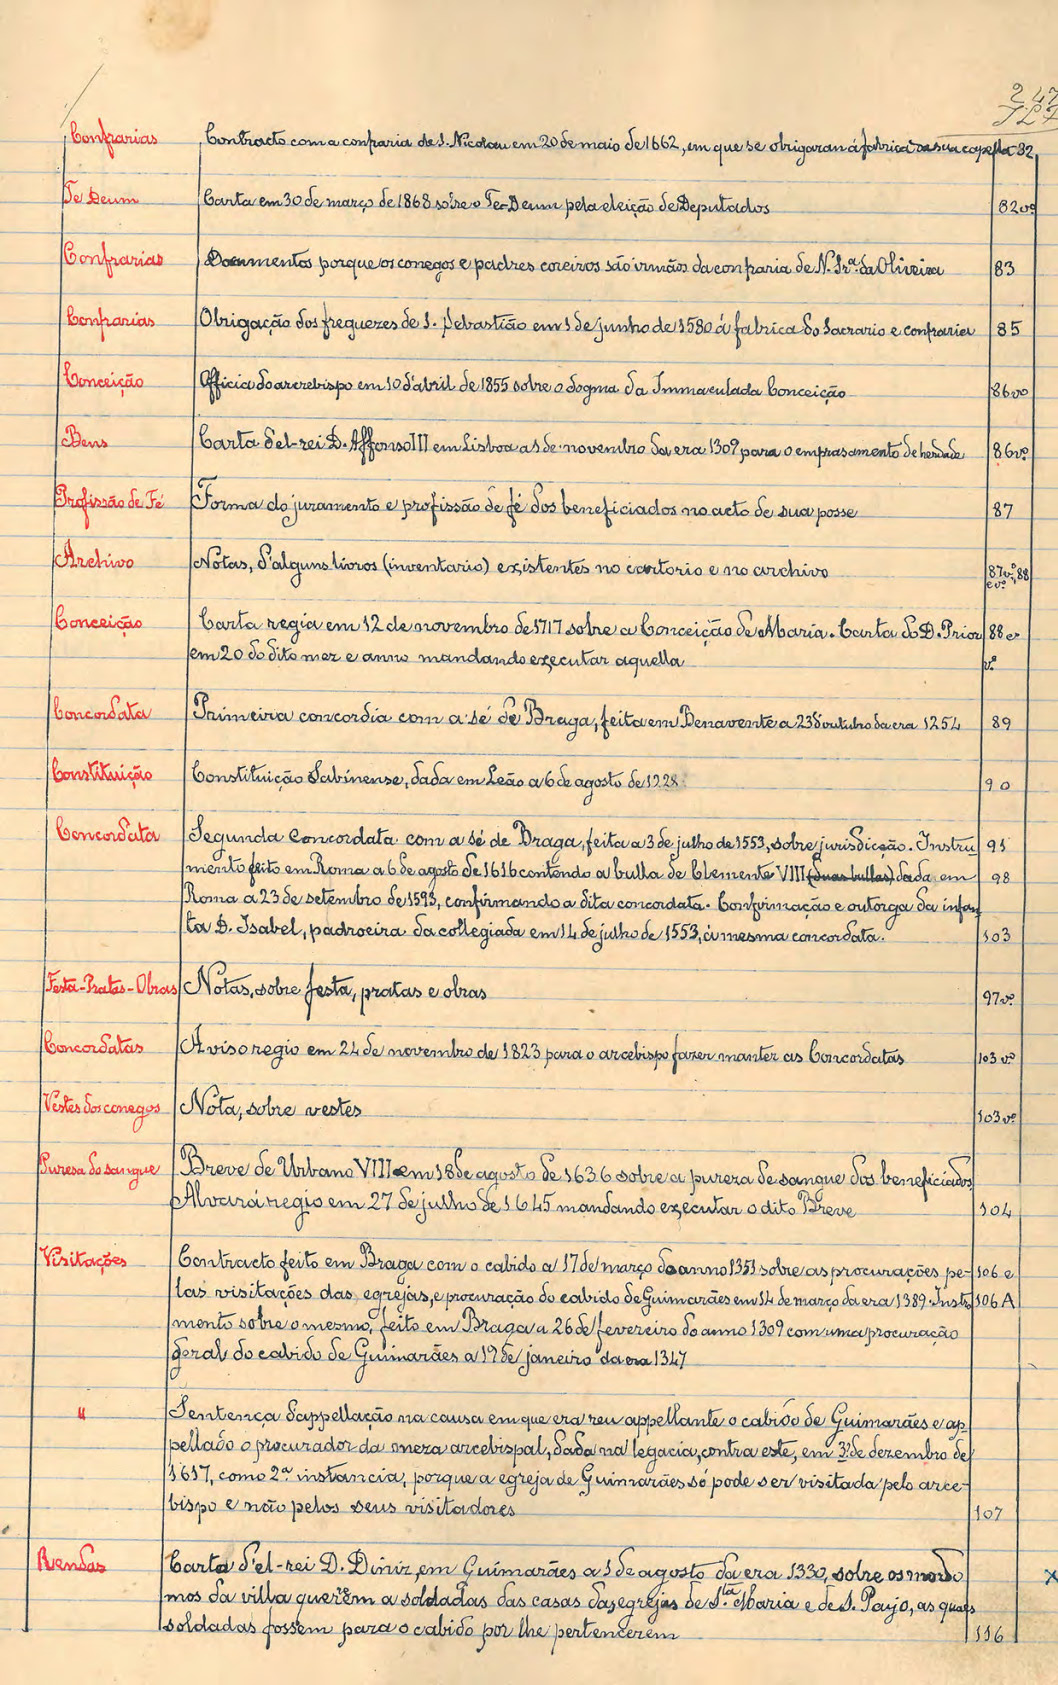 247
Confrarias Contracto com a confraria de S. Nicolau em 20 de maio de 1662, em que se obrigaram á fabrica da sua capella 82
Te Deum Carta em 30 de março de 1868 sobre o Te-Deum pela eleição de Deputados 82vº
Confrarias Documentos porque os conegos e padres coreiros são irmãos da confraria de N. Srª. da Oliveira 83
Confrarias Obrigação dos freguezes de S. Sebastião em 1 de junho de 1580 á fabrica do Sacrario e confraria 85
Conceição Officio do arcebispo em 10 d'abril de 1855 sobre o dogma da Immaculada Conceição 86vº
Bens Carta d'el-rei D. Affonso III em Lisboa a 1 de novembro da era 1309 para o emprasamento de herdade 86vº
Profissão de Fé Forma do juramento e profissão de fé dos beneficiados no acto de sua posse 87
Archivo Notas, d'alguns livros (inventario) existentes no cartorio e no archivo 87vº, 88
e vº
Conceição Carta regia em 12 de novembro de 1717 sobre a Conceição de Maria. Carta do D. Prior 88 e
em 20 do dito mez e anno mandando executar aquella vº
Concordata Primeira concordia com a sé de Braga, feita em Benavente a 23 d'outubro da era 1254 89
Constituição Constituição Sabinense, dada em Leão a 6 de agosto de 1228 90
Concordata Segunda Concordata com a sé de Braga, feita a 3 de julho de 1553, sobre jurisdicção. Instru- 91
mento feito em Roma a 6 de agosto de 1616 contendo a bulha de Clemente VIII (duas bullas) dada em 98
Roma a 23 de setembro de 1593, confirmando a dita concordata. Confirmação e outorga da infan-
ta D. Isabel, padroeira da collegiada em 14 de julho de 1553, á mesma concordata. 103
Festa-Pratas-Obras Notas, sobre festa, pratas e obras 97vº
Concordatas Aviso regio em 24 de novembro de 1823 para o arcebispo fazer manter as Concordatas 103 vº
Vestes dos conegos Nota, sobre vestes 103vº
Puresa do sangue Breve de Urbano VIII em 18 de agosto de 1636 sobre a pureza de sangue dos beneficiados
Alvará regio em 27 de julho de 1645 mandando executar o dito Breve 104
Visitações Contracto feito em Braga com o cabido a 17 de março do anno 1351 sobre as procurações pe- 106 e
las visitações das egrejas, e procuração do cabido de Guimarães em 14 de março da era 1389. Instru 106 A
mento sobre o mesmo, feito em Braga a 26 de fevereiro do anno 1309 com uma procuração
geral do cabido de Guimarães a 19 de janeiro da era 1347
" Sentença d'appellação na causa em que era reu appellante o cabido de Guimarães e ap-
pellado o procurador da meza arcebispal, dada na legacia, contra este, em 3 de dezembro de
1617, como 2ª instancia, porque a egreja de Guimarães só pode ser visitada pelo arce-
bispo e não pelos seus visitadores 107
Rendas Carta d'el-rei D. Diniz, em Guimarães a 1 de agosto da era 1330, sobre os mordo x
mos da villa quererem a soldadas das casas das egrejas de Sta Maria e de S. Payo, as quaes
soldadas fossem para o cabido por lhe pertencerem 116